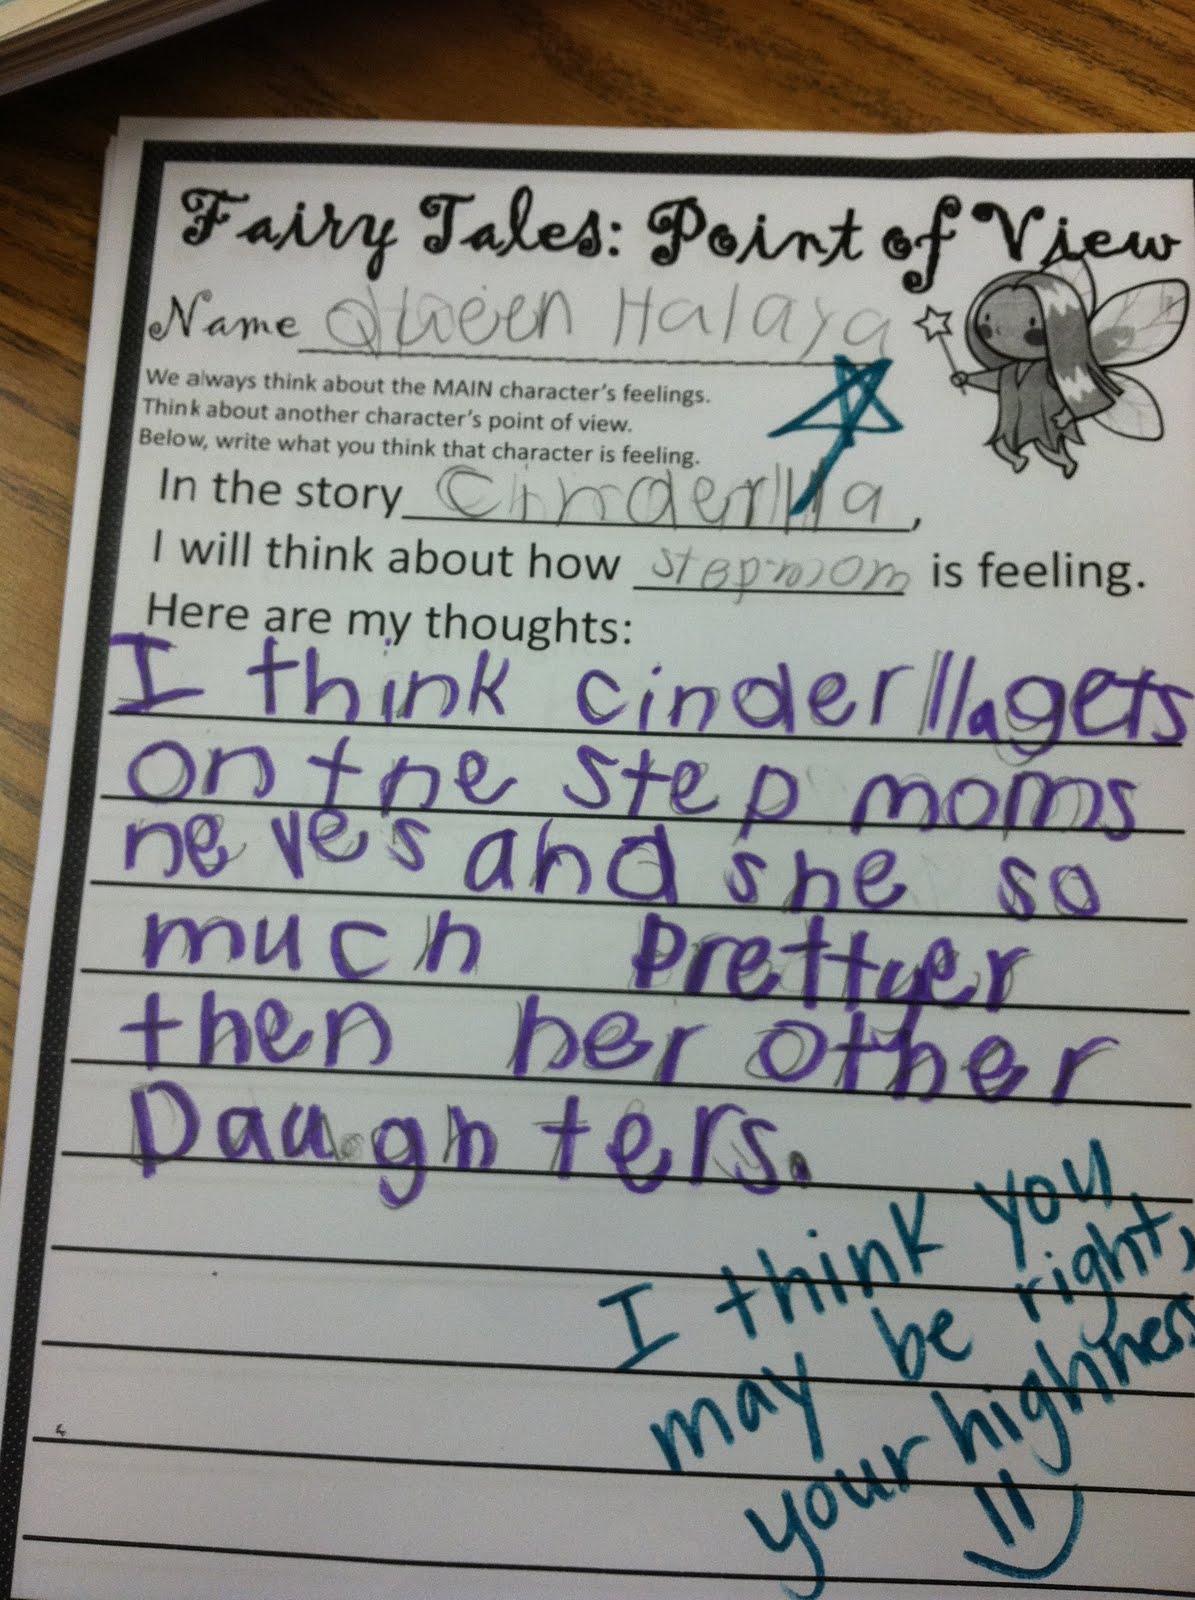 Fairy Tales: Point of View
Name Queen Halaya
We always think about the MAIN character's feelings.
Think about another character's point of view.
Below, write what you think that character is feeling.
In the story Cinderlla,
I will think about how stepmom is feeling.
Here are my thoughts:
I think cinderlla gets
on the step moms
neves and she so
much prettyer
then her other
Daughters.
I think you
may be right,
your highness